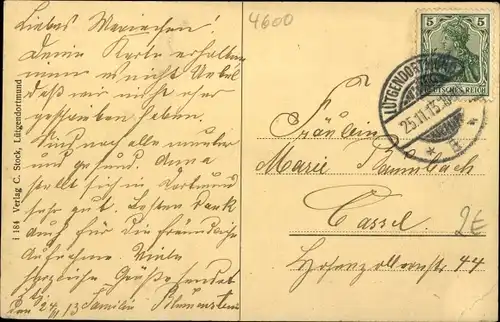 Liebes Mariechen!
Deine Karte erhalten
nimm es nicht Übel
daß wir nicht eher
geschrieben haben.
Sind noch alle munter
und gesund. Anna
stellt sich in Dortmund
sehr gut. Besten Dank
auch für die freundliche
Aufnahme. Viele
herzliche Grüße sendet
den 24/11 13 Familie Blumenstein
i 184 Verlag C. Stock, Lütgendortmund
4600
5 5
DEUTSCHES REICH
LÜTGENDORTMUND
25.11.13.10
* B *
Fräulein
Marie
Cassel.
Hohenzollernstr. 44
2€